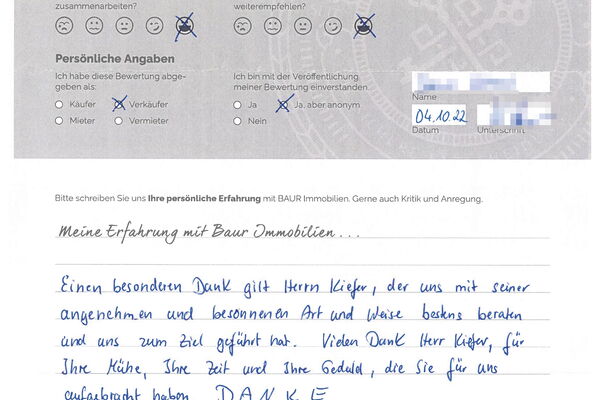 zusammenarbeiten?
weiterempfehlen?
Persönliche Angaben
Ich habe diese Bewertung abge-
geben als:
Käufer Verkäufer
Mieter Vermieter
Ich bin mit der Veröffentlichung
meiner Bewertung einverstanden.
Ja Ja, aber anonym
Nein
Name
04.10.22
Datum Unterschrift
Bitte schreiben Sie uns Ihre persönliche Erfahrung mit BAUR Immobilien. Gerne auch Kritik und Anregung.
Meine Erfahrung mit Baur Immobilien...
Einen besonderen Dank gilt Herrn Kiefer, der uns mit seiner
angenehmen und besonnenen Art und Weise bestens beraten
und uns zum Ziel geführt hat. Vielen Dank Herr Kiefer, für
Ihre Mühe, Ihre Zeit und Ihre Geduld, die Sie für uns
aufgebracht haben. DANKE